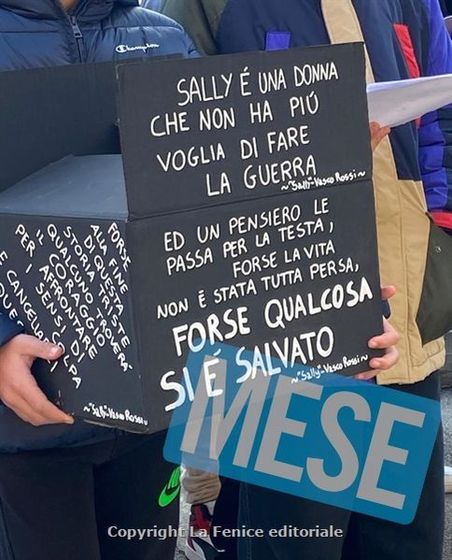 Champion
SALLY É UNA DONNA
CHE NON HA PIÚ
VOGLIA DI FARE
LA GUERRA
~"Sally"~Vasco Rossi~
ED UN PENSIERO LE
PASSA PER LA TESTA,
FORSE LA VITA
NON É STATA TUTTA PERSA,
FORSE QUALCOSA
SI É SALVATO
~"Sally"~Vasco Rossi~
FORSE
ALLA FINE
DI QUESTA TRISTE
STORIA
QUALCUNO TROVERÁ
IL CORAGGIO
DI AFFRONTARE
I SENSI DI COLPA
E CANCELLARLI
~"Sally"~Vasco Rossi
MESE
Copyright La Fenice editoriale